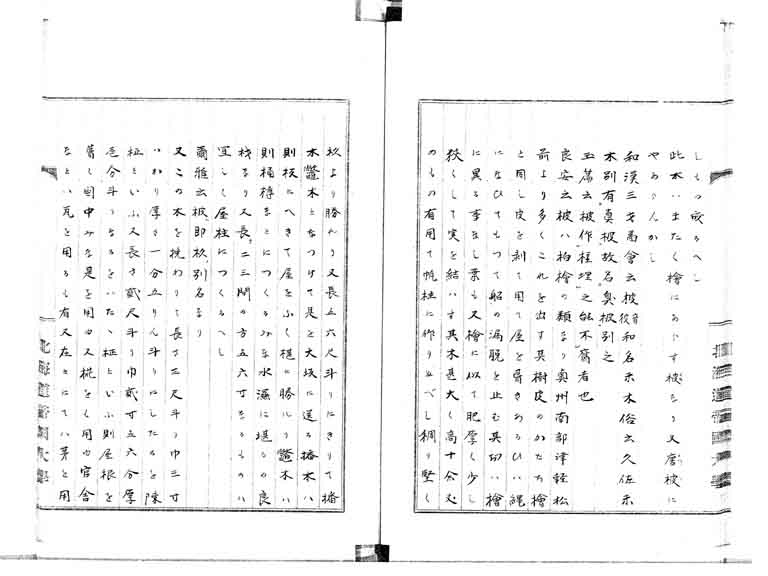 しもの成るへし
此木いまたく檜にあらす被なり又唐被に
やあらんかし
和漢三才圖會云被音彼和名禾木俗云久佐禾
木別有真被故名臭被別之
玉篇云被作柱埋之能不腐者也
良安云被ハ柏檜の類なり奥州南部津軽松
前より多くこれを出す其樹皮のかたち檜
と同し皮を剥て用て屋を葺きあるひハ縄
になひてもつて船の漏脱を止む其切ハ檜
に異る事なし葉も又檜に似て肥厚く少し
狭くして実を結ハす其木甚大く高十余丈
のもの有用て帆柱に作りゆべし稠り堅く
杦より勝れり又長五六尺斗りにきりて椿
木鼈木となつけて是を大坂に送る椿木ハ
則板にへきて屋をふく槌に勝ルり鼈木ハ
則桶樽等とにつくるみな水濕に堪るの良
材なり又長二三間の方五六寸なるものハ
宜しく屋柱につくるへし
爾雅云被即杦別名なり
又この木を挽わりて長さ三尺斗り巾三寸
いわり厚さ一分五りん斗りにしたるを陳
柾といふ又長さ貳尺斗り巾貳寸五六分厚
壱分斗りなるをいたゝ柾といふ則屋根を
葺し国中みな是を用ゆ又椛をも用ゆ官舎
なとハ瓦を用るも有又在とにてハ茅を用
北海道帝國大學
北海道帝國大學